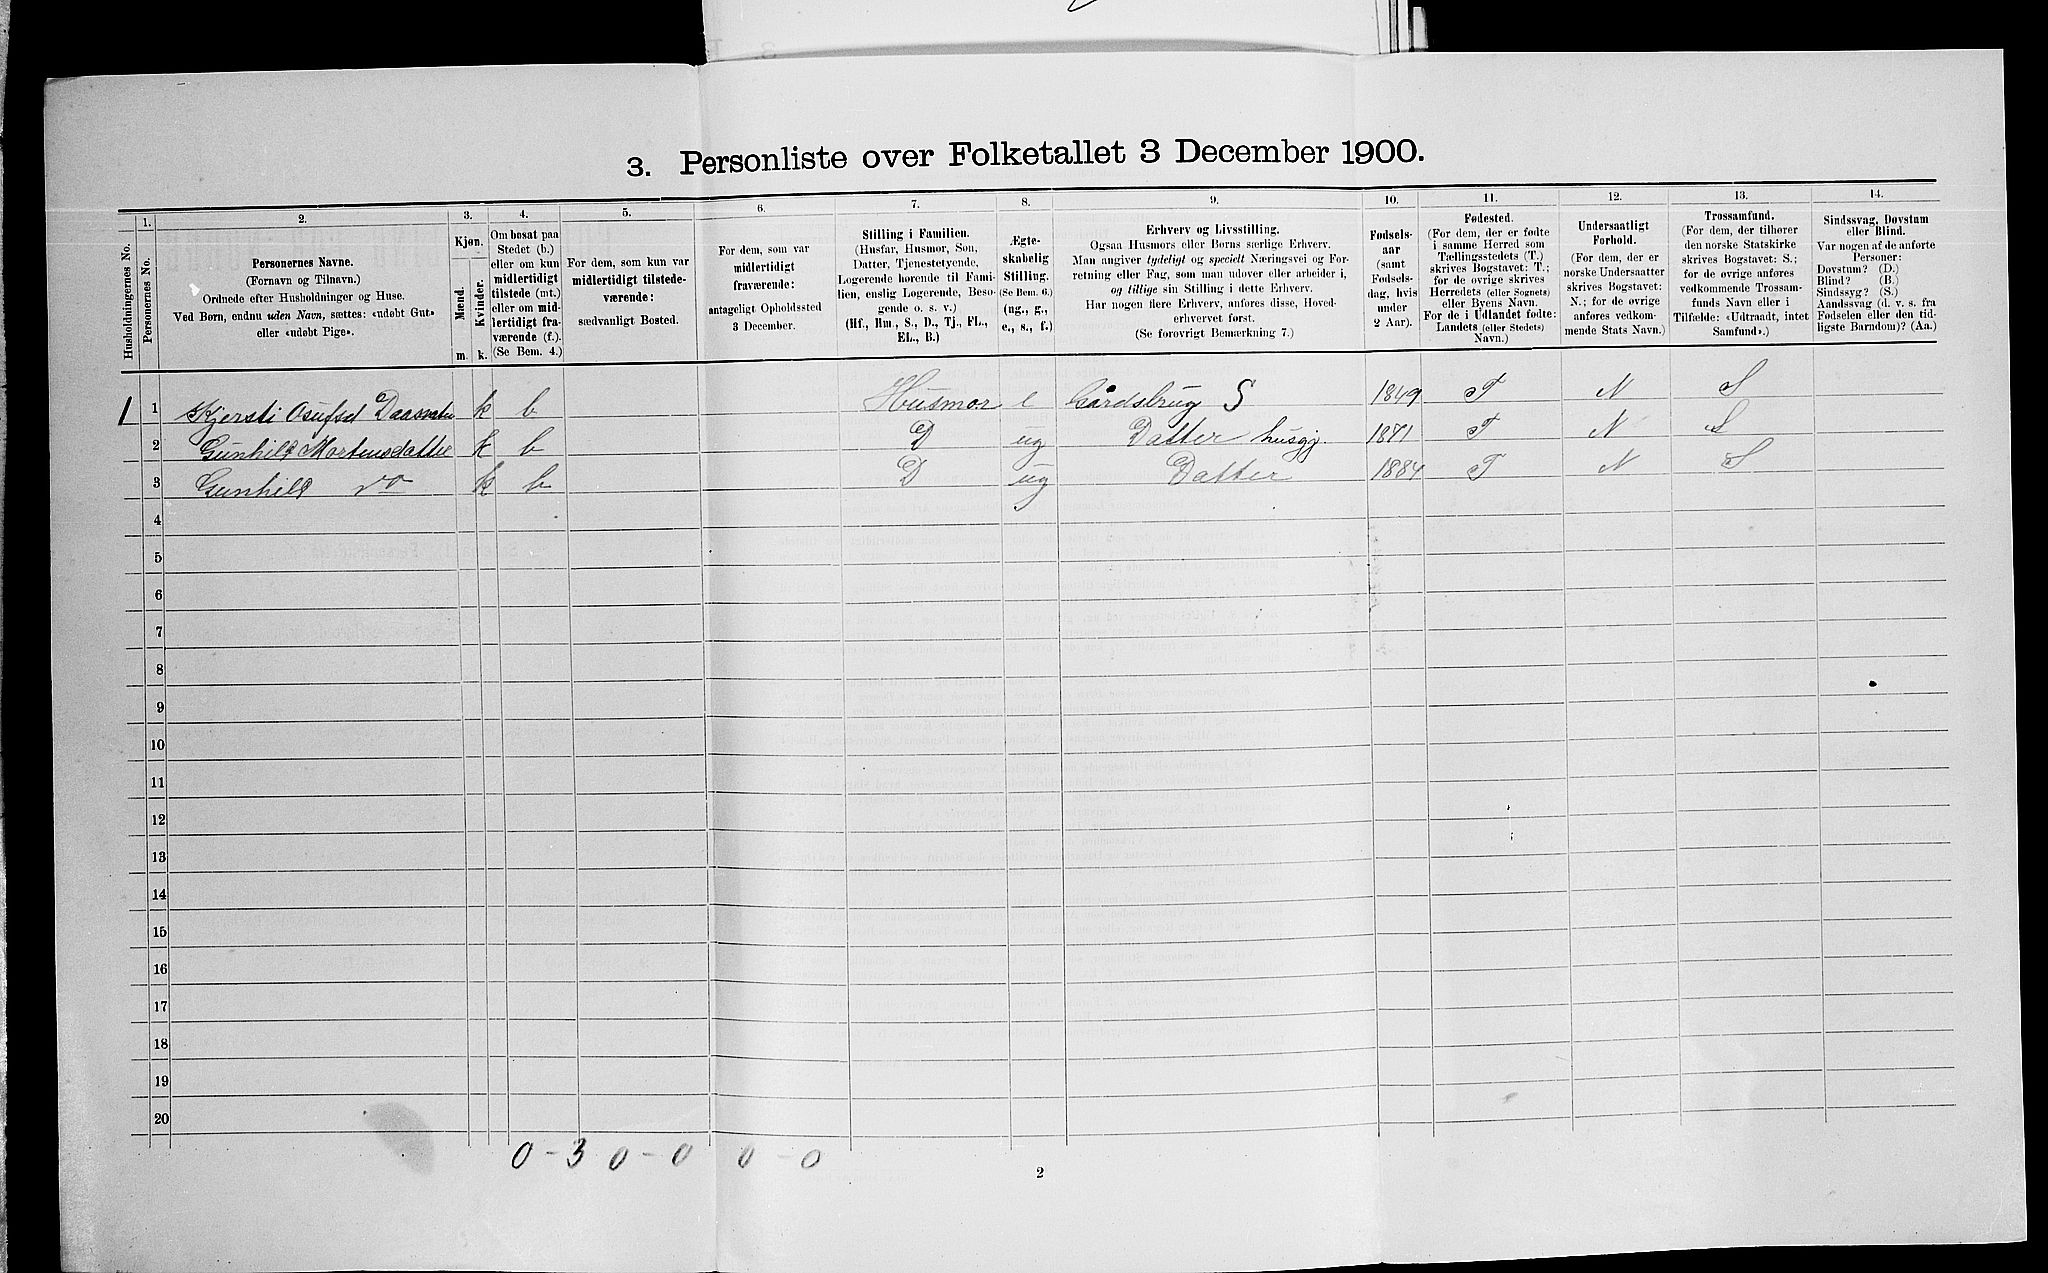 3. Personliste over Folketallet 3 December 1900.
1. 2. 3. 4. 5. 6. 7. 8. 9. 10. 11. 12. 13. 14.
Husholdningernes No.
Personernes No.
Personernes Navne.
(Fornavn og Tilnavn.)
Ordnede efter Husholdninger og Huse.
Ved Børn, endnu uden Navn, sættes: «udøbt Gut»
eller «udøbt Pige».
Kjøn.
Mænd.
Kvinder.
m. k.
Om bosat paa
Stedet (b.)
eller om kun
midlertidigt
tilstede (mt.)
eller om mid-
lertidigt fra-
værende (f.).
(Se Bem. 4.)
For dem, som kun var
midlertidigt tilstede-
værende:
sædvanligt Bosted.
For dem, som var
midlertidigt
fraværende:
antageligt Opholdssted
3 December.
Stilling i Familien.
(Husfar, Husmor, Søn,
Datter, Tjenestetyende,
Logerende hørende til Fami-
lien, enslig Logerende, Besø-
gende o. s. v.)
(Hf., Hm., S., D., Tj., FL.,
EL., B.)
Ægte-
skabelig
Stilling.
(Se Bem. 6.)
(ug., g.,
e., s., f.)
Erhverv og Livsstilling.
Ogsaa Husmors eller Børns særlige Erhverv.
Man angiver tydeligt og specielt Næringsvei og For-
retning eller Fag, som man udøver eller arbeider i,
og tillige sin Stilling i dette Erhverv.
Har nogen flere Erhverv, anføres disse, Hoved-
erhvervet først.
(Se forøvrigt Bemærkning 7.)
Fødsels-
aar
(samt
Fødsels-
dag, hvis
under
2 Aar).
Fødested.
(For dem, der er fødte
i samme Herred som
Tællingsstedets (T.)
skrives Bogstavet: T.;
for de øvrige skrives
Herredets (eller Sognets)
eller Byens Navn.
For de i Udlandet fødte:
Landets (eller Stedets)
Navn.)
Undersaatligt
Forhold.
(For dem, der er
norske Undersaatter
skrives Bogstavet:
N.; for de øvrige
anføres vedkom-
mende Stats Navn.)
Trossamfund.
(For dem, der tilhører
den norske Statskirke
skrives Bogstavet: S.;
for de øvrige anføres
vedkommende Trossam-
funds Navn eller i
Tilfælde: «Udtraadt, intet
Samfund».)
Sindssvag, Døvstum
eller Blind.
Var nogen af de anførte
Personer:
Døvstum? (D.)
Blind? (B.)
Sindssyg? (S.)
Aandssvag (d. v. s. fra
Fødselen eller den tid-
ligste Barndom)? (Aa.)
1 1 Kjersti Osufsd k b Husmor e Gårdsbrug S 1849 T N S
2 Gunhild Mortensdatter k b D ug Datter husgj. 1871 T N S
3 Gunhild do k b D ug Datter 1884 T N S
4
5
6
7
8
9
10
11
12
13
14
15
16
17
18
19
20
0 - 3 0 - 0 0 - 0
2